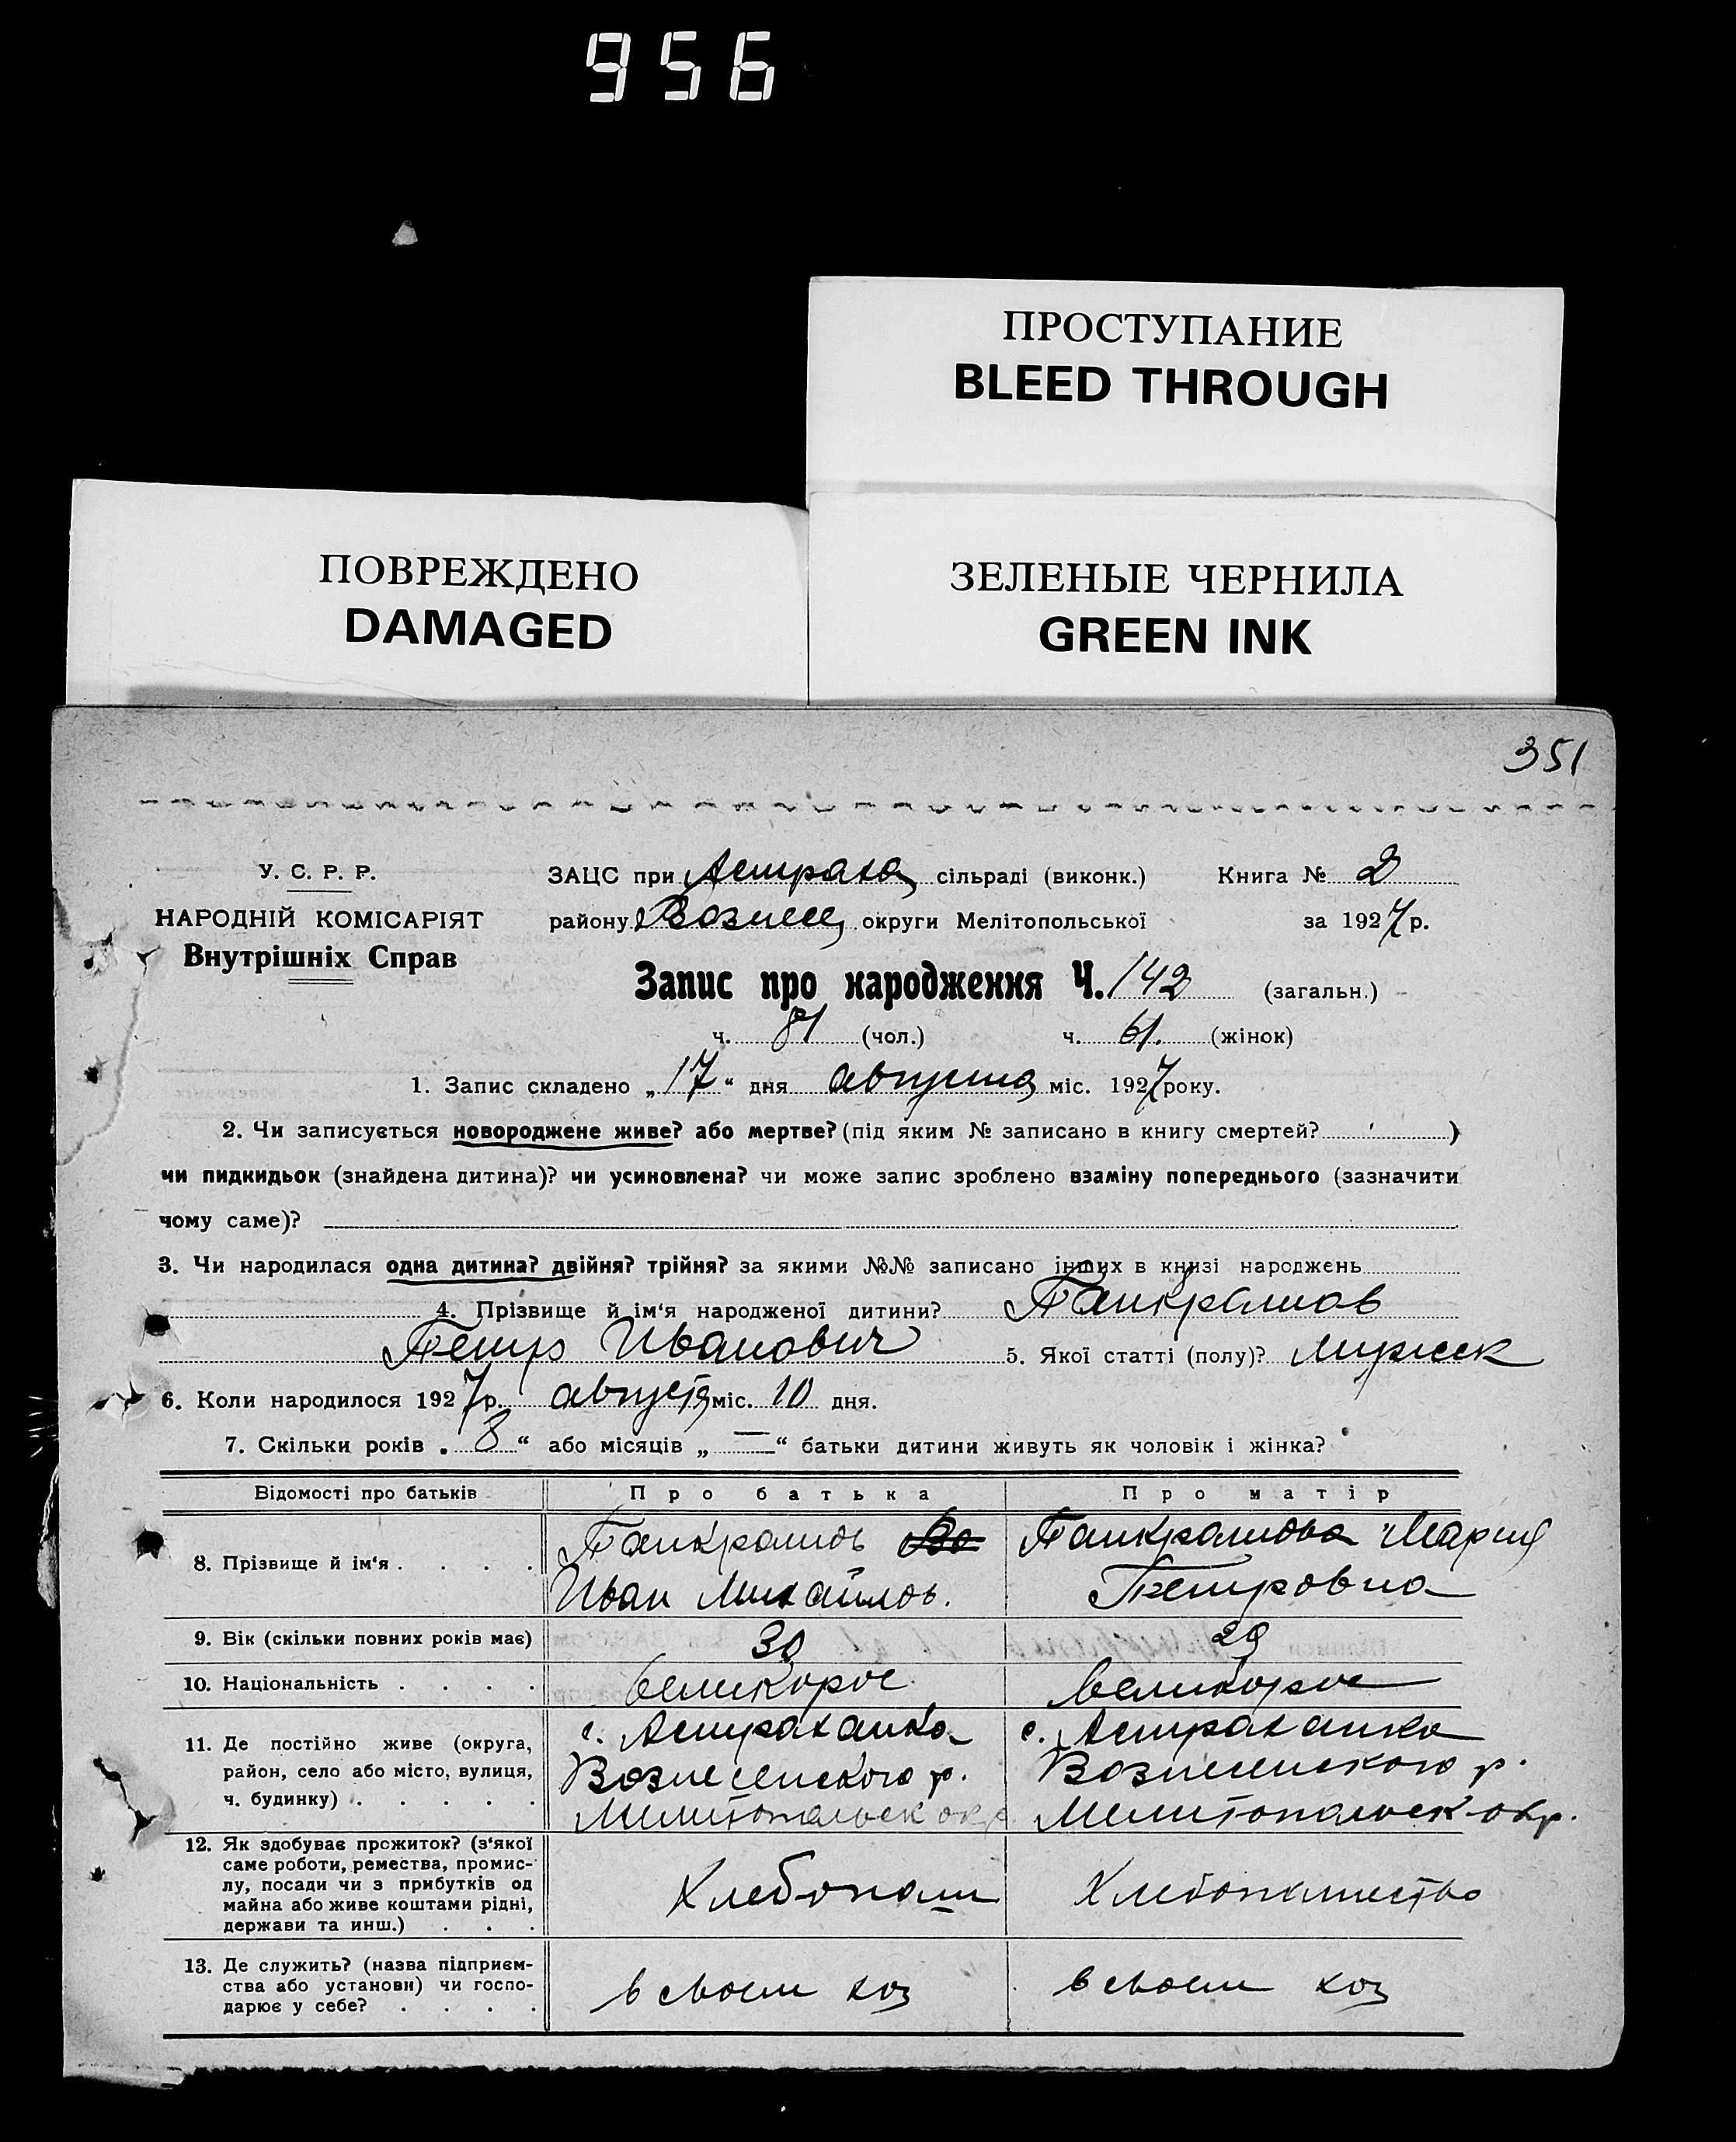 956
ПРОСТУПАНИЕ
BLEED THROUGH
ПОВРЕЖДЕНО
DAMAGED
ЗЕЛЕНЫЕ ЧЕРНИЛА
GREEN INK
351
У. С. Р. Р.
НАРОДНІЙ КОМІСАРІЯТ
Внутрішніх Справ
ЗАЦС при Астраха сільраді (виконк.) Книга № 2
району Вознес округи Мелітопольської за 1927 р.
Запис про народження Ч. 142 (загальн.)
ч. 81 (чол.) ч. 61. (жінок)
1. Запис складено „17“ дня августа міс. 1927 року.
2. Чи записується новороджене живе? або мертве? (під яким № записано в книгу смертей? )
чи пидкидьок (знайдена дитина)? чи усиновлена? чи може запис зроблено взаміну попереднього (зазначити
чому саме)?
3. Чи народилася одна дитина? двійня? трійня? за якими №№ записано інших в книзі народжень
4. Прізвище й ім‘я народженої дитини? Панкратов
Петр Иванович 5. Якої статті (полу)? мужск
6. Коли народилося 1927 р. августа міс. 10 дня.
7. Скільки років „8“ або місяців „—“ батьки дитини живуть як чоловік і жінка?
Відомості про батьків Про батька Про матір
8. Прізвище й ім‘я . . . . Панкратов Панкратова Мария
Иван Михайлов. Петровна
9. Вік (скільки повних років має) 30 29
10. Національність . . . . великорос великорос
11. Де постійно живе (округа, с. Астраханка с. Астраханка
район, село або місто, вулиця, Вознесенского р. Вознесенского р.
ч. будинку) . . . . . Мелитопольск окр Мелитопольск окр.
12. Як здобуває прожиток? (з‘якої
саме роботи, ремества, промис-
лу, посади чи з прибутків од Хлебопаш Хлебопашество
майна або живе коштами рідні,
держави та инш.) . . .
13. Де служить? (назва підприєм-
ства або установи) чи госпо- в своем хоз в своем хоз
дарює у себе? . . . .